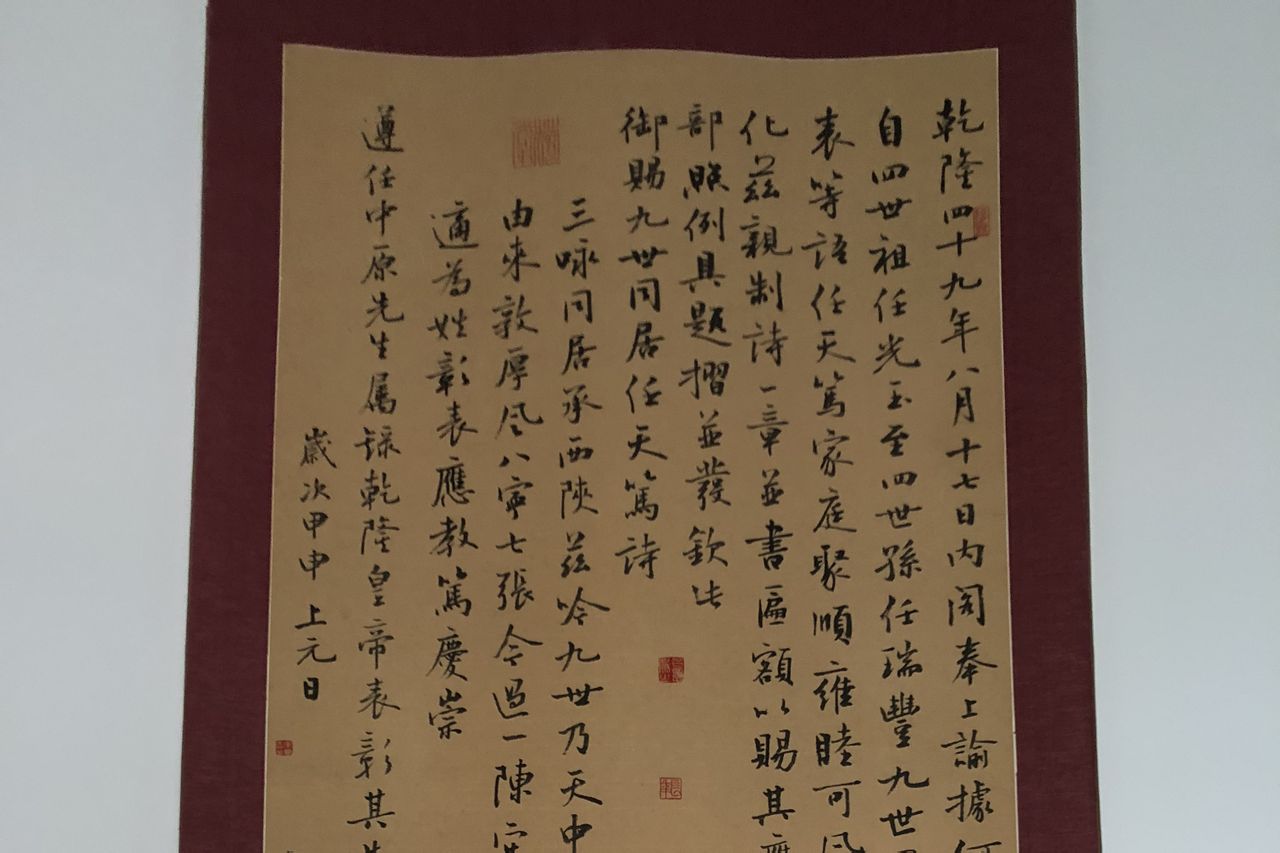 乾隆四十九年八月十七日內閣奉上諭據何
自四世祖任光玉至四世孫任瑞豐九世同
表等語任天篤家庭聚順雍睦可風
化茲親制詩一章並書匾額以賜其應
部照例具題摺並發欽此
御賜九世同居任天篤詩
三咏同居承西陝茲吟九世乃天中
由來敦厚風八寧七張今過一陳寔
適為姓彰表應教篤慶崇
遵任中原先生属録乾隆皇帝表彰其先
歲次甲申上元日